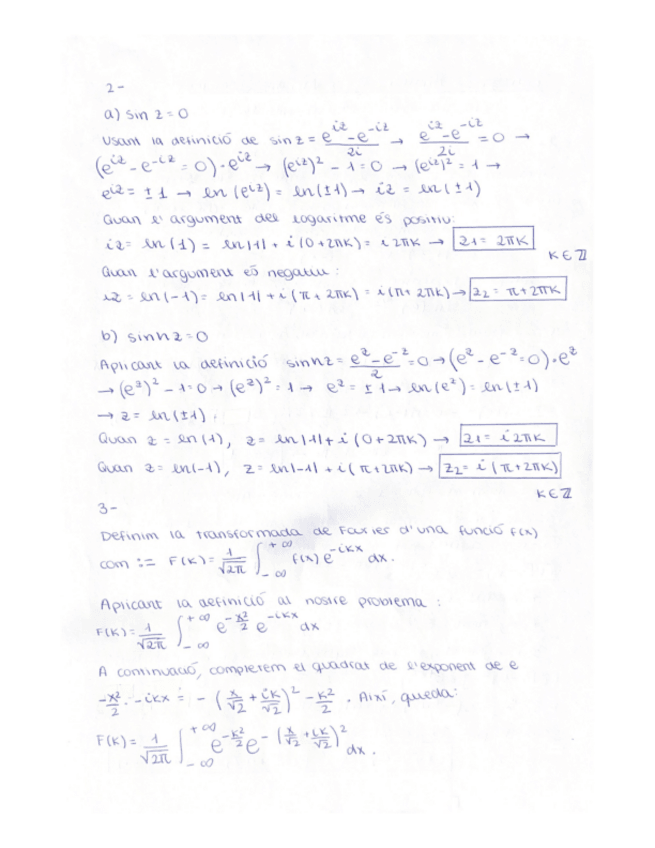 2-
a) sin z = 0
Usant la definició de sin z = (e^{iz} - e^{-iz})/2i → (e^{iz} - e^{-iz})/2i = 0 →
(e^{iz} - e^{-iz} = 0) · e^{iz} → (e^{iz})² - 1 = 0 → (e^{iz})² = 1 →
e^{iz} = ±1 → ln(e^{iz}) = ln(±1) → iz = ln(±1)
Quan l'argument del logaritme és positiu:
iz = ln(1) = ln|1| + i(0+2πK) = i2πK → z1 = 2πK
K ∈ ℤ
Quan l'argument és negatiu:
iz = ln(-1) = ln|1| + i(π+2πK) = i(π+2πK) → z2 = π+2πK
b) sinh z = 0
Aplicant la definició sinh z = (e^z - e^{-z})/2 = 0 → (e^z - e^{-z} = 0) · e^z
→ (e^z)² - 1 = 0 → (e^z)² = 1 → e^z = ±1 → ln(e^z) = ln(±1)
→ z = ln(±1).
Quan z = ln(1), z = ln|1| + i(0+2πK) → z1 = i2πK
Quan z = ln(-1), z = ln|-1| + i(π+2πK) → z2 = i(π+2πK)
K ∈ ℤ
3-
Definim la transformada de Fourier d'una funció f(x)
com := F(K) = 1/√2π ∫_{-∞}^{+∞} f(x) e^{-iKx} dx.
Aplicant la definició al nostre problema:
F(K) = 1/√2π ∫_{-∞}^{+∞} e^{-x²/2} e^{-iKx} dx
A continuació, completem el quadrat de l'exponent de e
-x²/2 - iKx = -(x/√2 + iK/√2)² - K²/2. Així, queda:
F(K) = 1/√2π ∫_{-∞}^{+∞} e^{-K²/2} e^{-(x/√2 + iK/√2)²} dx.